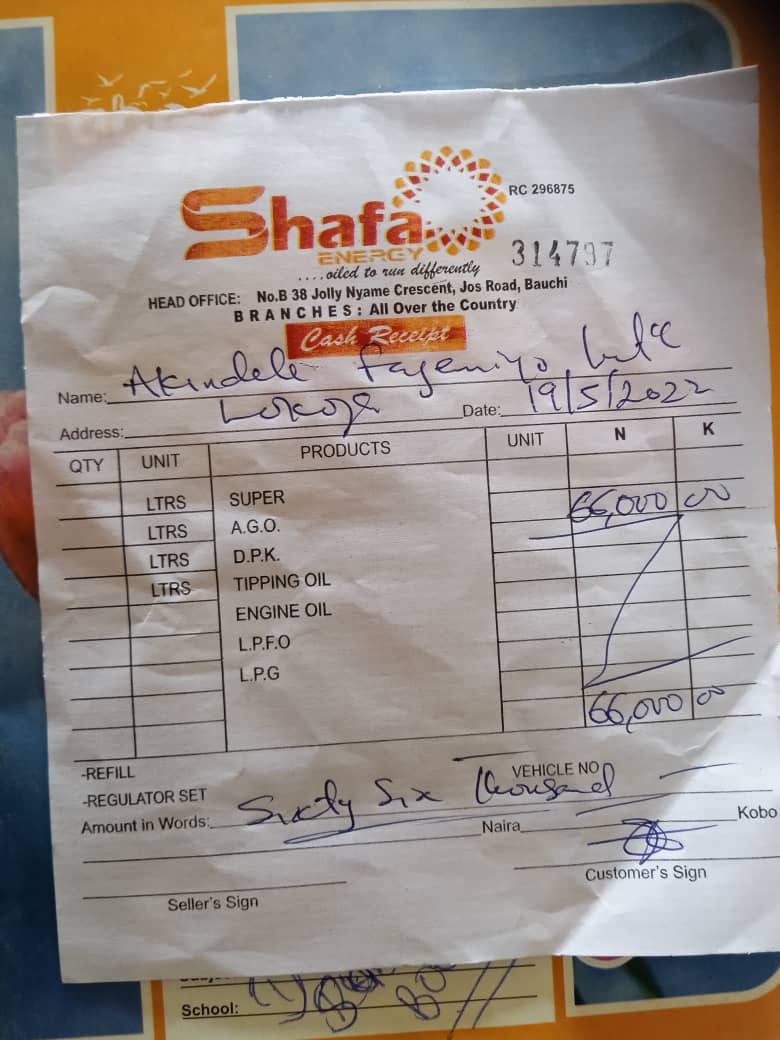 Shafa
ENERGY
RC 296875
314797
....oiled to run differently
HEAD OFFICE: No.B 38 Jolly Nyame Crescent, Jos Road, Bauchi
BRANCHES: All Over the Country
Cash Receipt
Name: Akindele
Address: Lokoja Date: 19/5/2022
QTY UNIT PRODUCTS UNIT N K
LTRS SUPER 66,000 00
LTRS A.G.O.
LTRS D.P.K.
LTRS TIPPING OIL
ENGINE OIL
L.P.F.O
L.P.G
66,000 00
-REFILL VEHICLE NO
-REGULATOR SET
Amount in Words: Sixty Six thousand
Naira Kobo
Seller's Sign Customer's Sign
School: